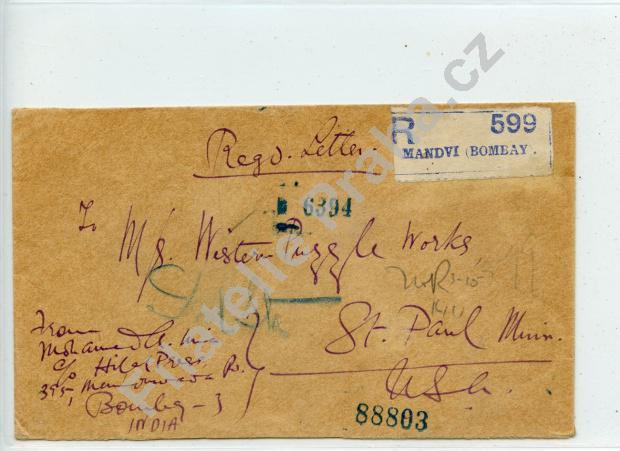 Regd. Letter.
R 599
MANDVI (BOMBAY.
6394
To
M/s. Western Puzzle Works
St. Paul Minn.
U.S.A.
From
Mohamed A.
c/o Hilal Press
395, Rd.
Bombay-3
INDIA
88803
Filatelie Praha.cz